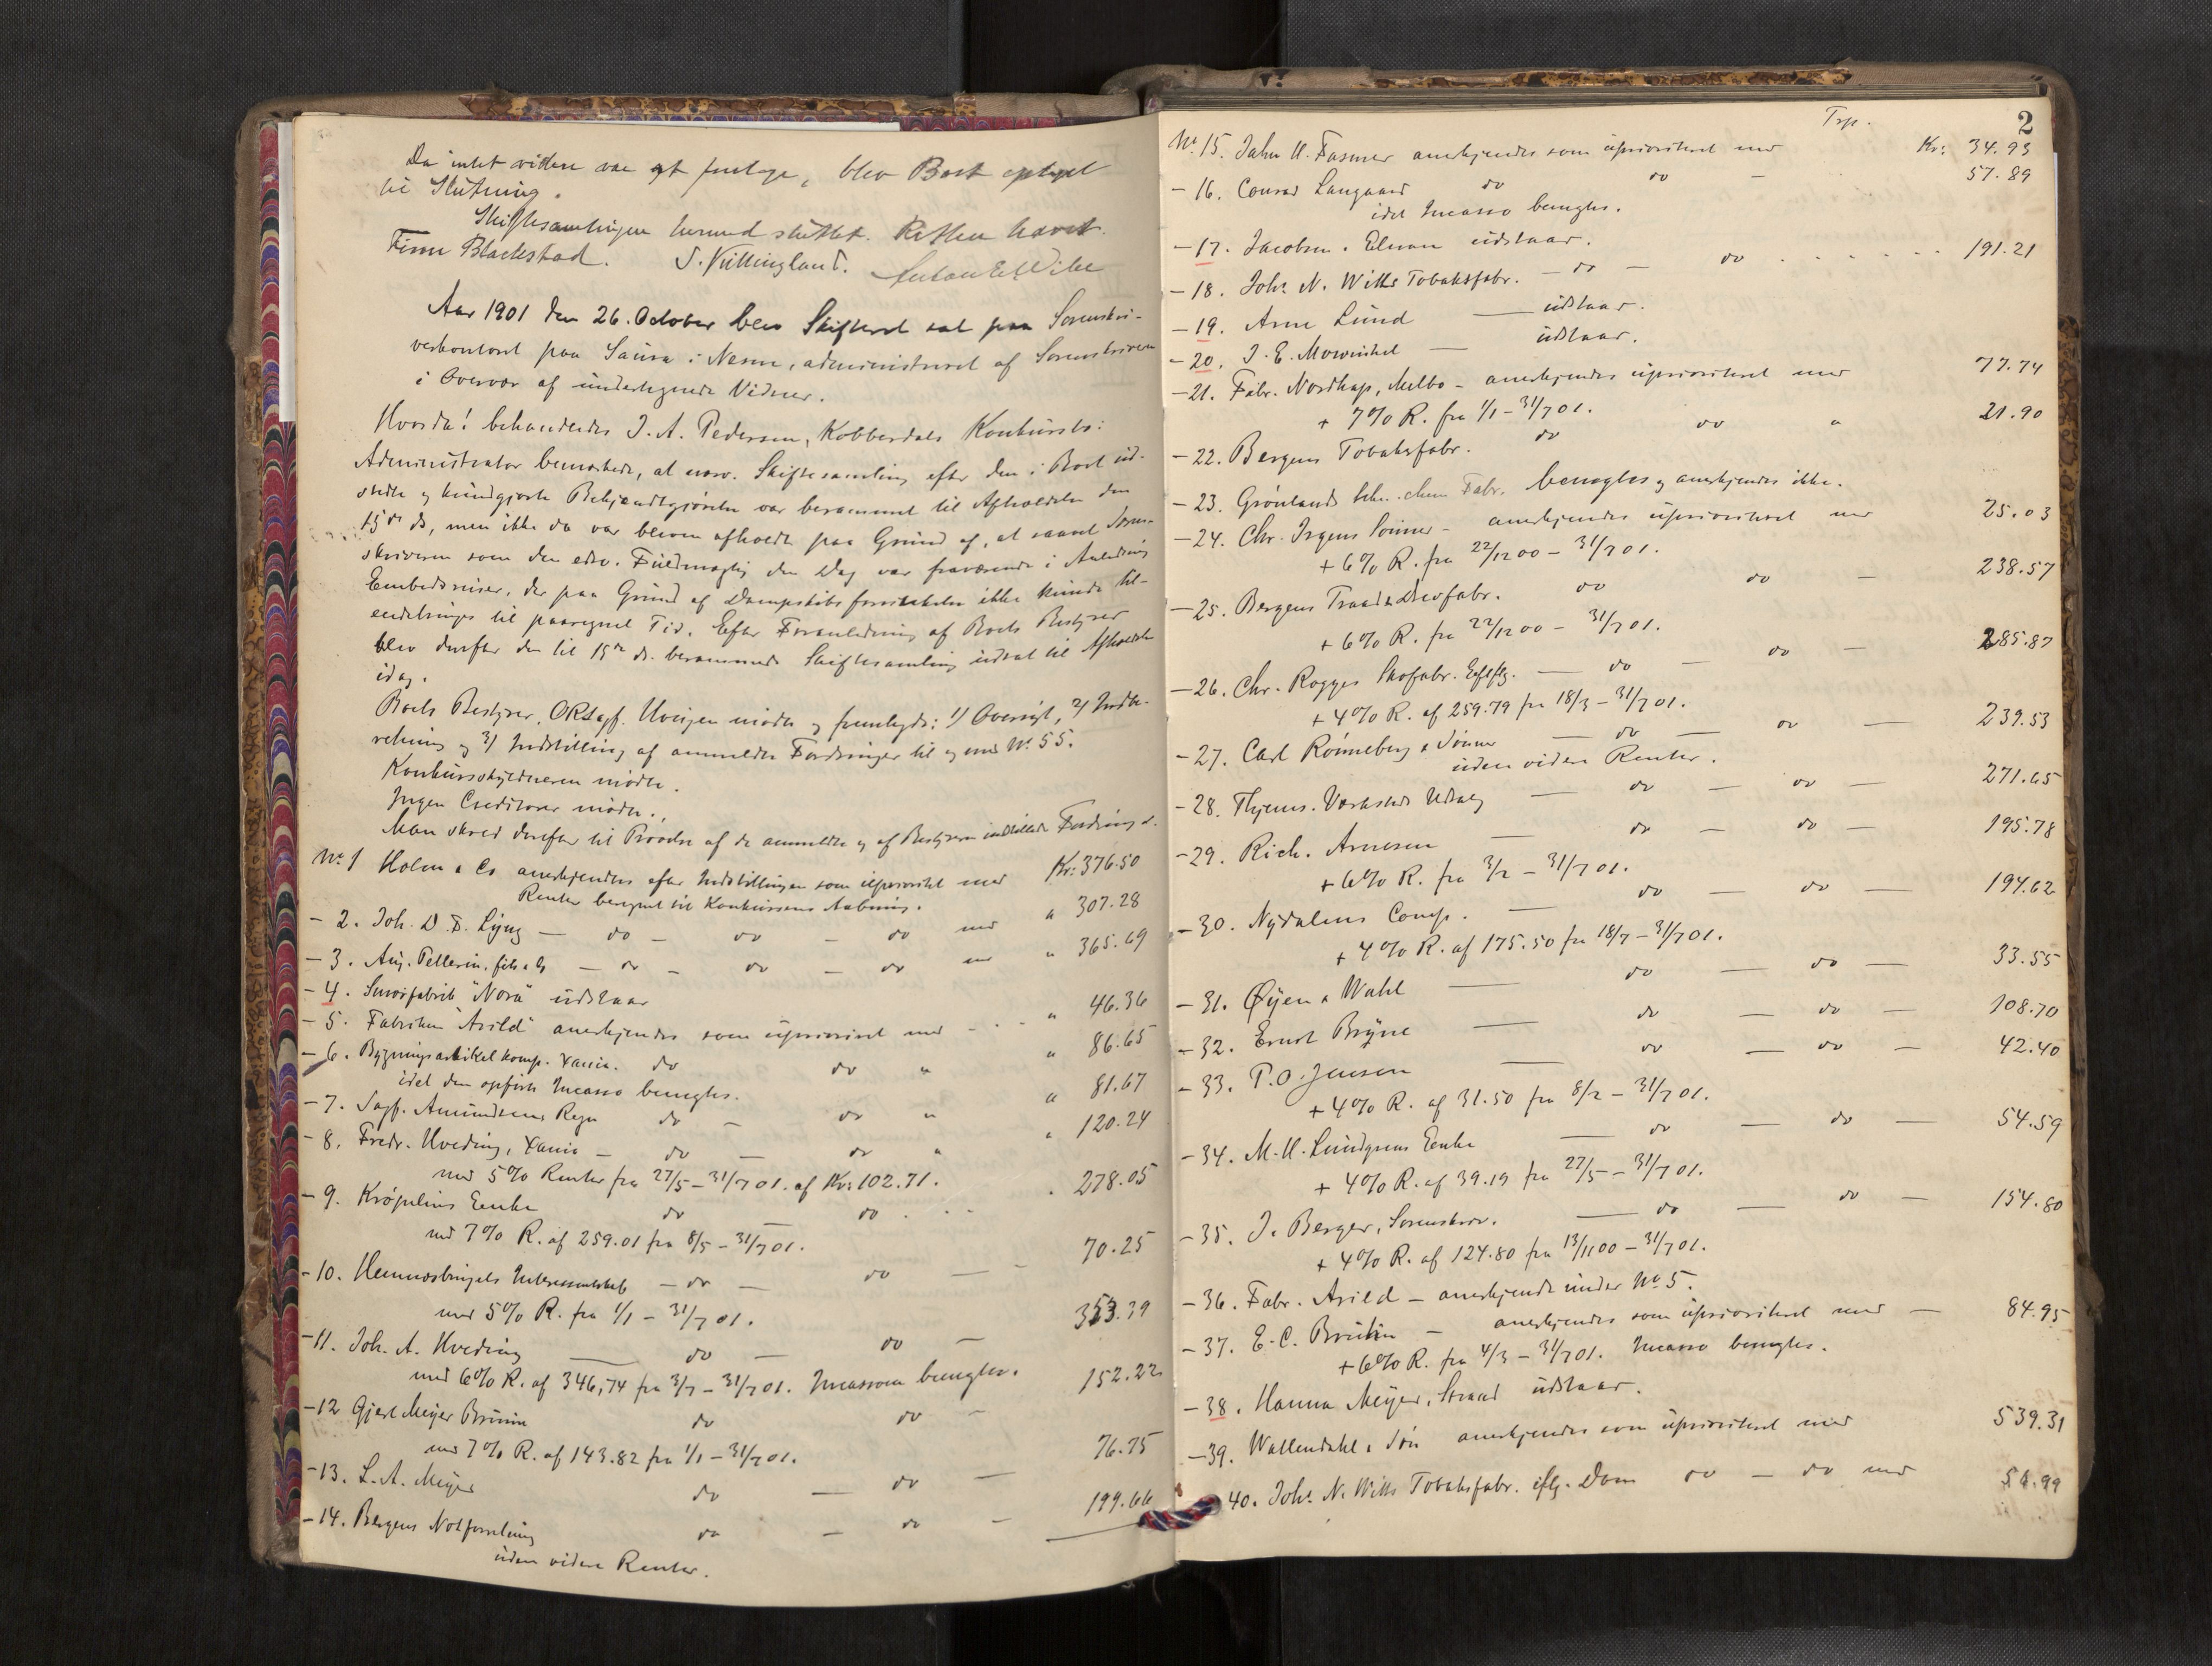 Da intet videre var at foretage, blev Boet optaget
til Slutning.
Skiftesamlingen hermed sluttet. Retten hævet.
Finn Blackstad. S. Kullingland. Anton E. Wibe
Aar 1901 den 26. October blev Skifteret sat paa Sorenskri-
verkontoret paa Saura i Nesne, administreret af Sorenskriveren
i Overvær af undertegnede Vidner.
Hvorda! behandledes J. A. Pedersen, Kobberdals Konkursbo:
Administrator bemærkede, at nærv. Skiftesamling efter den i Boet ud-
stedte og kundgjorte Bekjendtgjørelse var berammet til Afholdelse den
15de ds, men ikke da var bleven afholdt paa Grund af, at saavel Soren-
skriveren som den edsv. Fuldmægtig den Dag var fraværende i Anledning
Embedsreiser, der paa Grund af Dampskibsforsinkelse ikke kunde til-
endebringes til paaregnet Tid. Efter Foranledning af Boets Bestyrer
blev derfor den til 15de ds. berammede Skiftesamling udsat til Afholdelse
idag.
Boets Bestyrer, ORSagf. Hveijen mødte og fremlagde: 1) Oversigt, 2) Indbe-
retning og 3) Indstilling af anmeldte Fordringer til og med No 55.
Konkursskyldneren mødte.
Ingen Creditorer mødte.
Man skred derefter til Prøvelse af de anmeldte og af Bestyreren indstillede Fordringer.
No 1 Holm & Co anerkjendes efter Indstillingen som uprioritet med Kr: 376.50
Renter beregnet til Konkursens Aabning.
- 2. Joh. D. F. Lyng - do - do - do med " 307.28
- 3. Aug. Pellerin, fils & Co - do - do - do med " 365.69
- 4. Smørfabrik "Nora" udstaar
- 5. Fabriken "Arild" anerkjendes som uprioriteret med - - - " 46.36
- 6. Bygningsartikelkomp. Xania. do do " " 86.65
idet den opførte Incasso benegtes.
- 7. Sagf. Amundsens Regn do - do " " 81.67
- 8. Fredr. Hveding, Xania - do - do " " 120.24
med 5% Renter fra 27/5 - 31/7 01. af Kr: 102.71.
- 9. Krøpelins Enke do - do . . . 278.05
med 7% R. af 259.01 fra 8/5 - 31/7 01.
- 10. Hemnæsbergets Interessentskab - do - do - - 70.25
med 5% R. fra 1/1 - 31/7 01.
- 11. Joh. A. Hveding - do - do - 353.39
med 6% R. af 346,74 fra 3/7 - 31/7 01. Incassoen benegtes.
- 12 Gjert Meyer Bruun do do - 152.22
med 7% R. af 143.82 fra 1/1 - 31/7 01.
- 13. L. A. Meyer do - do - 76.75
- 14. Bergens Notforretning do - do - 199.66
uden videre Renter.
Trp.
2
No 15. Jahn H. Fasmer anerkjendes som uprioriteret med Kr: 34.93
- 16. Conrad Langaard do do - 57.89
idet Incasso benegtes.
- 17. Jacobsen & Elman udstaar.
- 18. Johs N. Witts Tobaksfabr. - do - do . . . . . . 191.21
- 19. Arne Lund - udstaar.
- 20. J. E. Mowinkel - udstaar.
- 21. Fabr. Nordkap, Melbo - anerkjendes uprioriteret med 77.74
+ 7% R. fra 1/1 - 31/7 01.
- 22. Bergens Tobaksfabr. do do " 21.90
- 23. Grønlands tekn. chem Fabr. benegtes og anerkjendes ikke.
- 24. Chr. Irgens Sønner - anerkjendes uprioriteret med 25.03
+ 6% R. fra 22/12 00 - 31/7 01.
- 25. Bergens Traad & Drevfabr. do do - 238.57
+ 6% R. fra 22/12 00 - 31/7 01.
- 26. Chr. Rogges Skofabr. Eftflg. - do - do - 285.87
+ 4% R. af 259.79 fra 18/3 - 31/7 01.
- 27. Carl Rønneberg & Sønner - do - do - 239.53
uden videre Renter.
- 28. Thjems. Værksteds Udsalg - do - do - 271.65
- 29. Rich. Arnesen - do - do - 195.78
+ 6% R. fra 3/2 - 31/7 01.
- 30. Nydalens Comp. - do - do - 194.62
+ 4% R. af 175.50 fra 18/7 - 31/7 01.
- 31. Øyen & Wahl - do - do - 33.55
- 32. Ernst Bryne - do - do - 108.70
- 33. P. O. Jensen - do - do - 42.40
+ 4% R. af 31.50 fra 8/2 - 31/7 01.
- 34. M. H. Lundgrens Enke - do - do - 54.59
+ 4% R. af 39.19 fra 27/5 - 31/7 01.
- 35. J. Berger, Sorenskrv. - do - do - 154.80
+ 4% R. af 124.80 fra 13/11 00 - 31/7 01.
- 36. Fabr. Arild - anerkjendt under No 5.
- 37. E. C. Bruhn - anerkjendes som uprioriteret med - 84.95
+ 6% R. fra 4/3 - 31/7 01. Incasso benegtes.
- 38. Hanna Meyer, Strand udstaar.
- 39. Wallendahl & Søn anerkjendes som uprioriteret med 539.31
40. Johs N. Witts Tobaksfabr. iflg. Dom do - do med 54.99